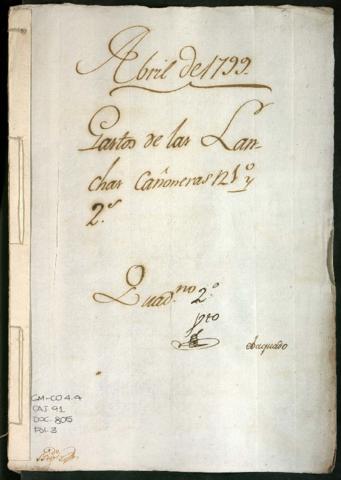 Abril de 1799.
Gastos de las Lan-
chas Cañoneras N 1º y
2º
Quadno 2º
pto
chequeado
GM-CO 4.4
CAJ 91
DOC-8015
FOL-3